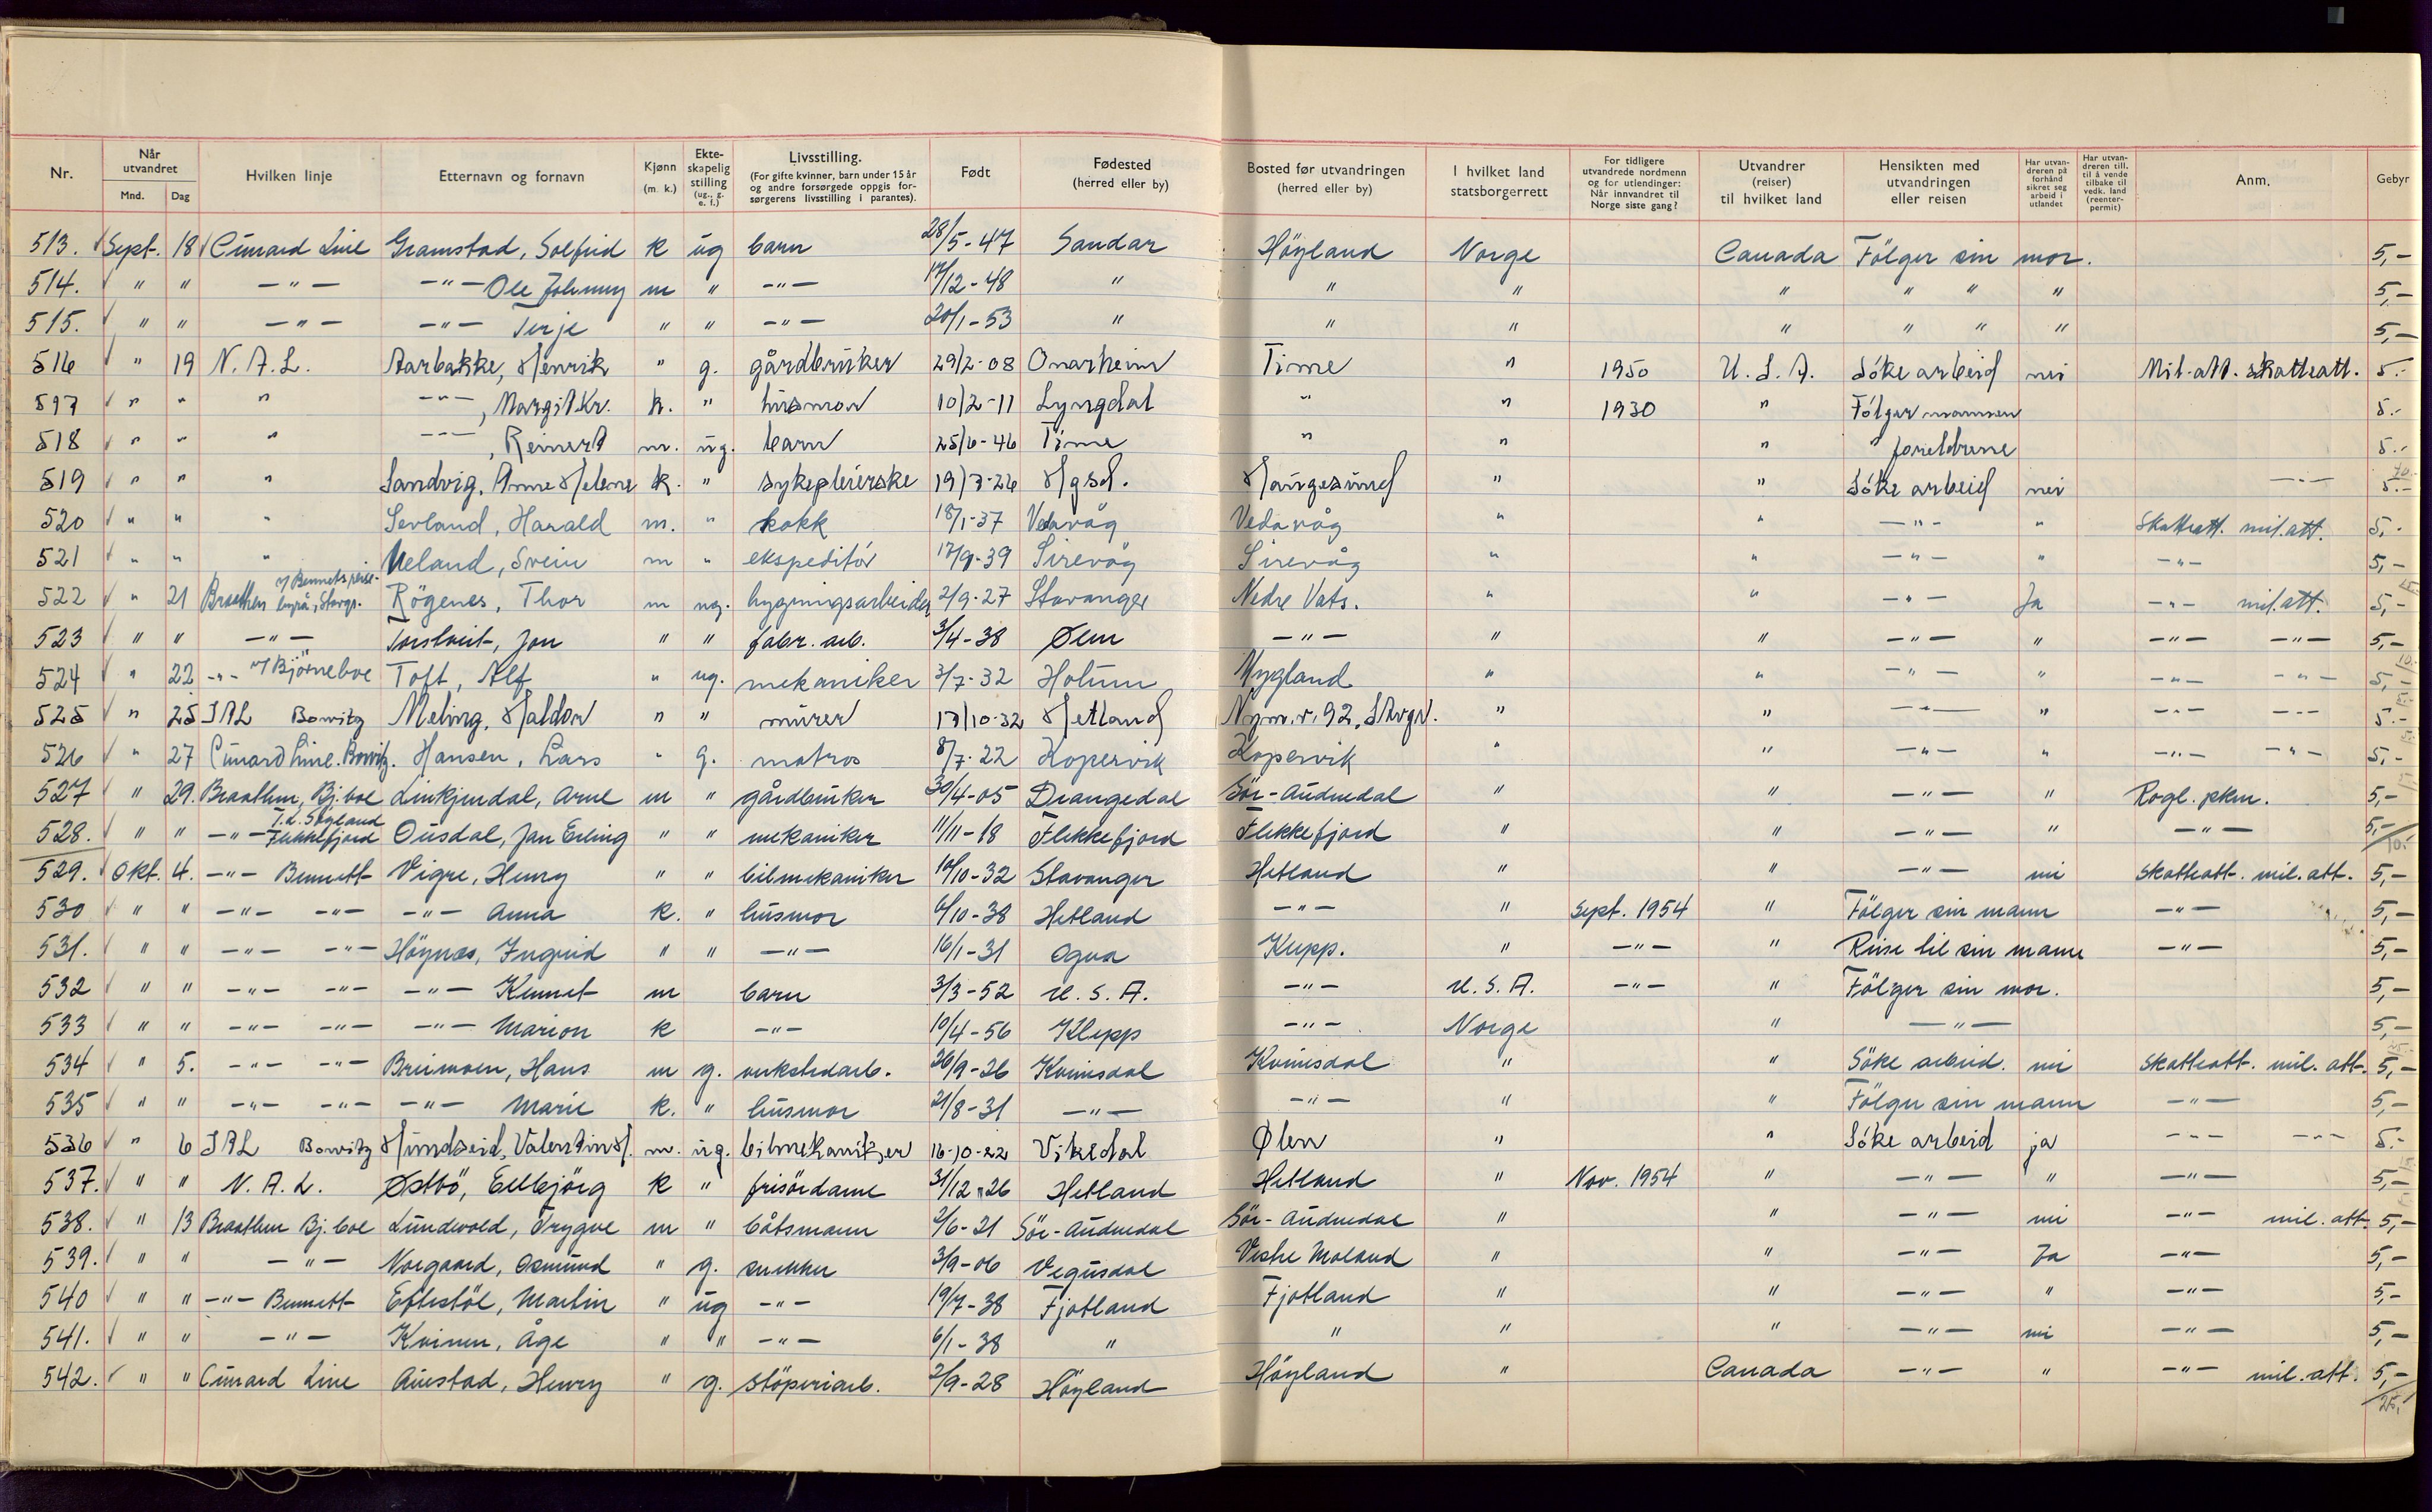 Nr. | Når utvandret Mnd. Dag | Hvilken linje | Etternavn og fornavn | Kjønn (m. k.) | Ekte-skapelig stilling (ug., g. e. f.) | Livsstilling. (For gifte kvinner, barn under 15 år og andre forsørgede oppgis for-sørgerens livsstilling i parantes). | Født | Fødested (herred eller by) | Bosted før utvandringen (herred eller by) | I hvilket land statsborgerrett | For tidligere utvandrede nordmenn og for utlendinger: Når innvandret til Norge siste gang? | Utvandrer (reiser) til hvilket land | Hensikten med utvandringen eller reisen | Har utvan-dreren på forhånd sikret seg arbeid i utlandet | Har utvan-dreren till. til å vende tilbake til vedk. land (reenter-permit) | Anm. | Gebyr
513. √ Sept. 18 √ Cunard Line Gramstad, Solfrid k ug barn 28/5-47 Sandar Höyland Norge Canada Fölger sin mor. 5,-
514. √ " " -"- -"- Ole Johnny m " -"- 17/12-48 " " " " " " " 5,-
515. √ " " -"- -"- Terje " " -"- 20/1-53 " " " " " " " 5,-
516 √ " 19 N.A.L. Aarbakke, Henrik " g. gårdbruker 29/2-08 Onarheim Time " 1950 U.S.A. Söke arbeid nei Mil.att. skatteatt. 5.-
517 √ " " " -"-, Margit Kr. k. " husmor 10/2-11 Lyngdal " " 1930 " Fölger mannen 5.-
518 √ " " " -"-, Reinert m. ug. barn 25/6-46 Time " " " " foreldrene 5.-
519 √ " " " Sandvig, Anne Helene k. " sykepleierske 19/7-26 Hgsd. Haugesund " " Söke arbeid nei -"- 5.-
520 √ " " " Sevland, Harald m. " kokk 18/1-37 Vedavåg Vedavåg " " -"- " Skatteatt. mil.att. 5,-
521 √ " " " Ueland, Svein m " ekspeditör 17/9-39 Sirevåg Sirevåg " " -"- " -"- 5,-
522 √ " 21 Braathen v/ Bennets reise-byrå, Stavgr. Rögenes, Thor m ug. bygningsarbeider 2/9-27 Stavanger Nedre Vats. " " -"- Ja -"- mil.att. 5,-
523 √ " " -"- Torstveit, Jon " " fabr. arb. 3/4-38 Ølen -"- " " -"- " -"- -"- 5,-
524 √ " 22 -"- v/ Björneboe Toft, Alf " ug. mekaniker 3/7-32 Holum Mygland " " -"- " -"- -"- 5,-
525 √ " 25 IAL Bowitz Meling, Haldor " " murer 17/10-32 Hetland Nymr. 92, Stvgr. " " -"- " -"- -"- 5.-
526 √ " 27 Cunard Line. Bowitz. Hansen, Lars " g. matros 8/7-22 Kopervik Kopervik " " -"- " -"- -"- 5,-
527 √ " 29. Braathen, Bj.boe Linkjendal, Arne m " gårdbruker 30/4-05 Drangedal Sör-Audnedal " " -"- " Rogl. pkm. 5,-
528. √ " " -"- T.L. Sögland Flekkefjord Ousdal, Jan Erling " " mekaniker 11/11-18 Flekkefjord Flekkefjord " " -"- " -"- 5,-
10.-
529. √ Okt. 4. -"- Bennett Vigre, Henry " " bilmekaniker 10/10-32 Stavanger Hetland " " -"- nei Skatteatt. mil.att. 5,-
530 √ " " -"- -"- -"- Anna k. " husmor 6/10-38 Hetland -"- " Sept. 1954 " Fölger sin mann -"- 5,-
531. √ " " -"- -"- Höynæs, Ingrid " " -"- 16/1-31 Ogna Klepp. " -"- " Reise til sin mann -"- 5,-
532 √ " " -"- -"- -"- Kennet m barn 3/3-52 U.S.A. -"- U.S.A. -"- " Fölger sin mor. 5,-
533 √ " " -"- -"- -"- Marion k -"- 10/4-56 Klepp -"- Norge " -"- 5,-
534 √ " 5. -"- -"- Briimoen, Hans m g. verkstedarb. 26/9-26 Kvinesdal Kvinesdal " " Söke arbeid. nei Skatteatt. mil. att. 5,-
535 √ " " -"- -"- -"- Marie k. " husmor 21/8-31 -"- -"- " " Fölger sin mann -"- 5,-
536 √ " 6 IAL Bowitz Hundseid, Valentin H. m. ug. bilmekaniker 16-10-22 Vikedal Ølen " " Söke arbeid ja -"- -"- 5.-
537. √ " " N.A.L. Østbö, Ellbjörg k " frisördame 31/12-26 Hetland Hetland " Nov. 1954 " -"- " -"- 5,-
538. √ " 13 Braathen Bj.boe Lundevold, Trygve m " båtsmann 2/6-21 Sör-Audnedal Sör-Audnedal " " -"- nei -"- mil.att. 5,-
539. √ " " -"- Norgaard, Osmund " g. snekker 3/9-06 Vegusdal Vestre Moland " " -"- Ja -"- 5,-
540 √ " " -"- Bennett Eftestöl, Martin " ug -"- 19/7-38 Fjotland Fjotland " " -"- " -"- 5,-
541. √ " " -"- Kvinen, Åge " " -"- 6/1-38 " " " " -"- nei -"- 5,-
542. √ " " Cunard Line Austad, Henry " g. stöperiarb. 2/9-28 Höyland Höyland " Canada -"- " -"- mil.att. 5,-
25,-